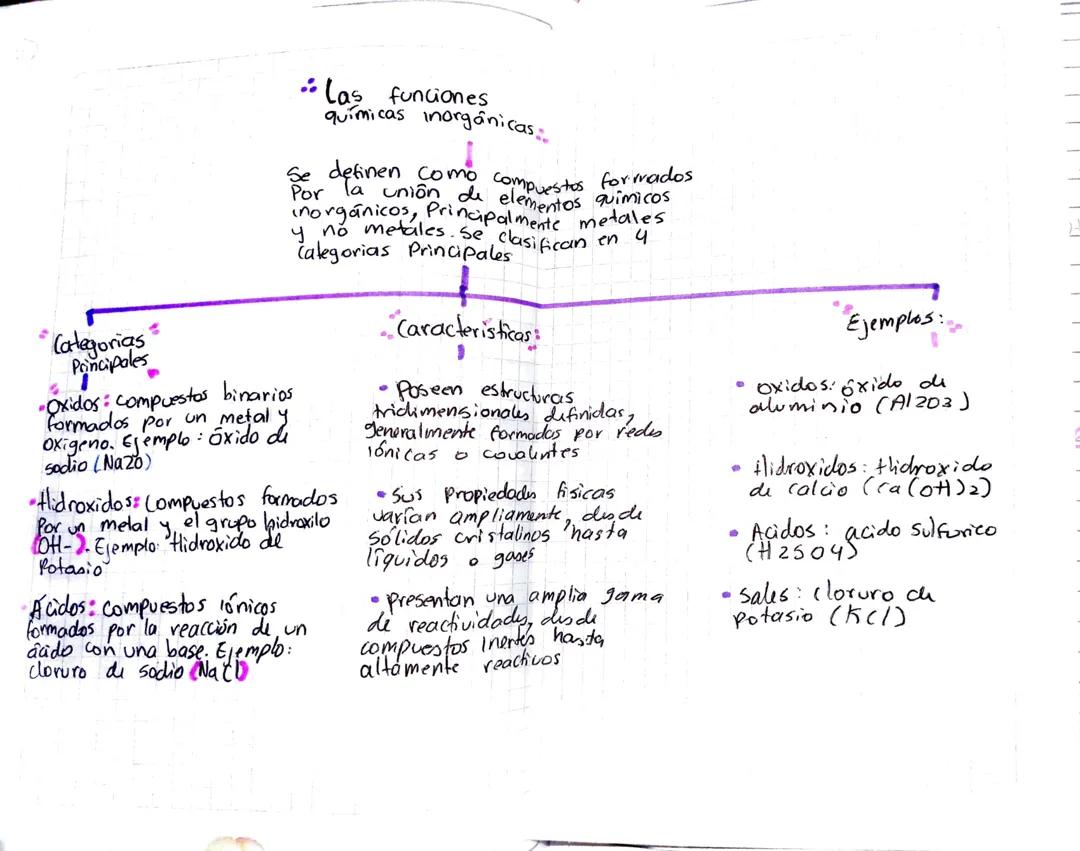 Las funciones
químicas inorgánicas:
Se definen como compuestos formados
Por la unión de elementos químicos
inorgánicos, Principalmente metales
y no metales. Se clasifican en 4
Categorias Principales
Categorias
Principales
Oxidos: compuestos binarios
formados por un metal y
oxígeno. Ejemplo: óxido de
sodio (Na2O)
Hidroxidos: Compuestos formados
Por un metal y el grupo hidroxilo
(OH-). Ejemplo: Hidroxido de
Potasio
Ácidos: compuestos iónicos
formados por la reacción de un
ácido con una base. Ejemplo:
cloruro de sodio (NaCl)
Caracteristicas:
• Poseen estructuras
tridimensionales definidas,
generalmente formados por redes
iónicas o covalentes
• Sus propiedades fisicas
varían ampliamente, desde
sólidos cristalinos hasta
líquidos o gases
• Presentan una amplia gama
de reactividades, desde
compuestos inertes hasta
altamente reactivos
Ejemplos:
• oxidos: óxido de
aluminio (Al2O3)
• Hidroxidos: Hidroxido
de calcio (Ca(OH)2)
• Acidos: acido sulfurico
(H2SO4)
• Sales: cloruro de
potasio (KCl)